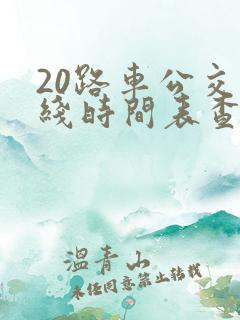 20路車公交
綫時間表查
溫青山
未經同意禁止轉載